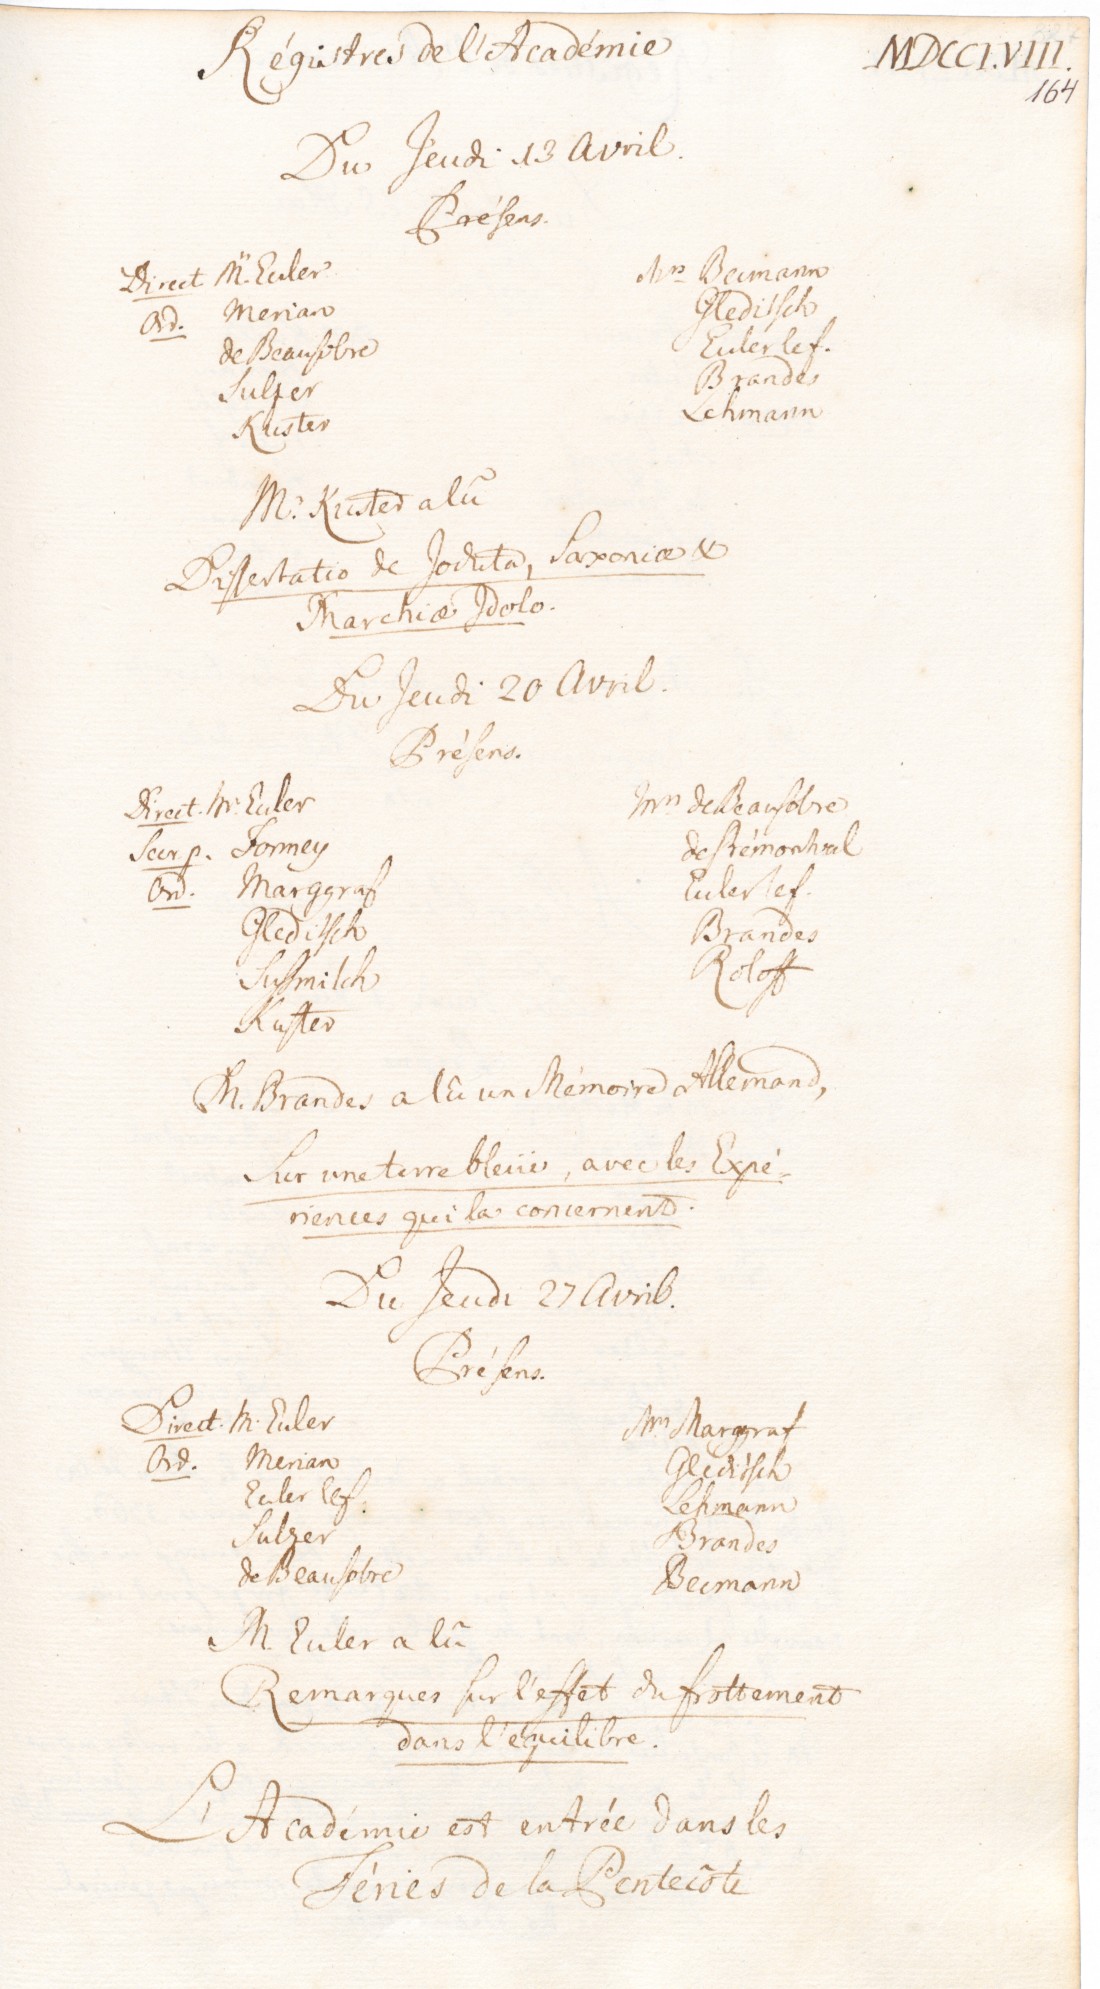 Régistres de l'Académie
MDCCLVIII.
164
Du Jeudi 13 Avril.
Présens.
Direct. Mr. Euler
Ord. Merian
de Beausobre
Sulzer
Kuster
Mrs Becmann
Gleditsch
Euler le f.
Brandes
Lehmann
Mr. Kuster a lû
Dissertatio de Joduta, Saxoniæ &
Marchiæ Idolo.
Du Jeudi 20 Avril.
Présens.
Direct. Mr. Euler
Secr. p. Formey
Ord. Marggraf
Gleditsch
Sussmilch
Kuster
Mrs de Beausobre
de Prémontval
Euler le f.
Brandes
Roloff
M. Brandes a lû un Mémoire Allemand,
Sur une terre bleüe, avec les Expé-
riences qui la concernent.
Du Jeudi 27 Avril.
Présens.
Direct. M. Euler
Ord. Merian
Euler le f.
Sulzer
de Beausobre
Mrs Marggraf
Gleditsch
Lehmann
Brandes
Becmann
M. Euler a lû
Remarques sur l'effet du frottement
dans l'équilibre.
L'Académie est entrée dans les
Féries de la Pentecôte